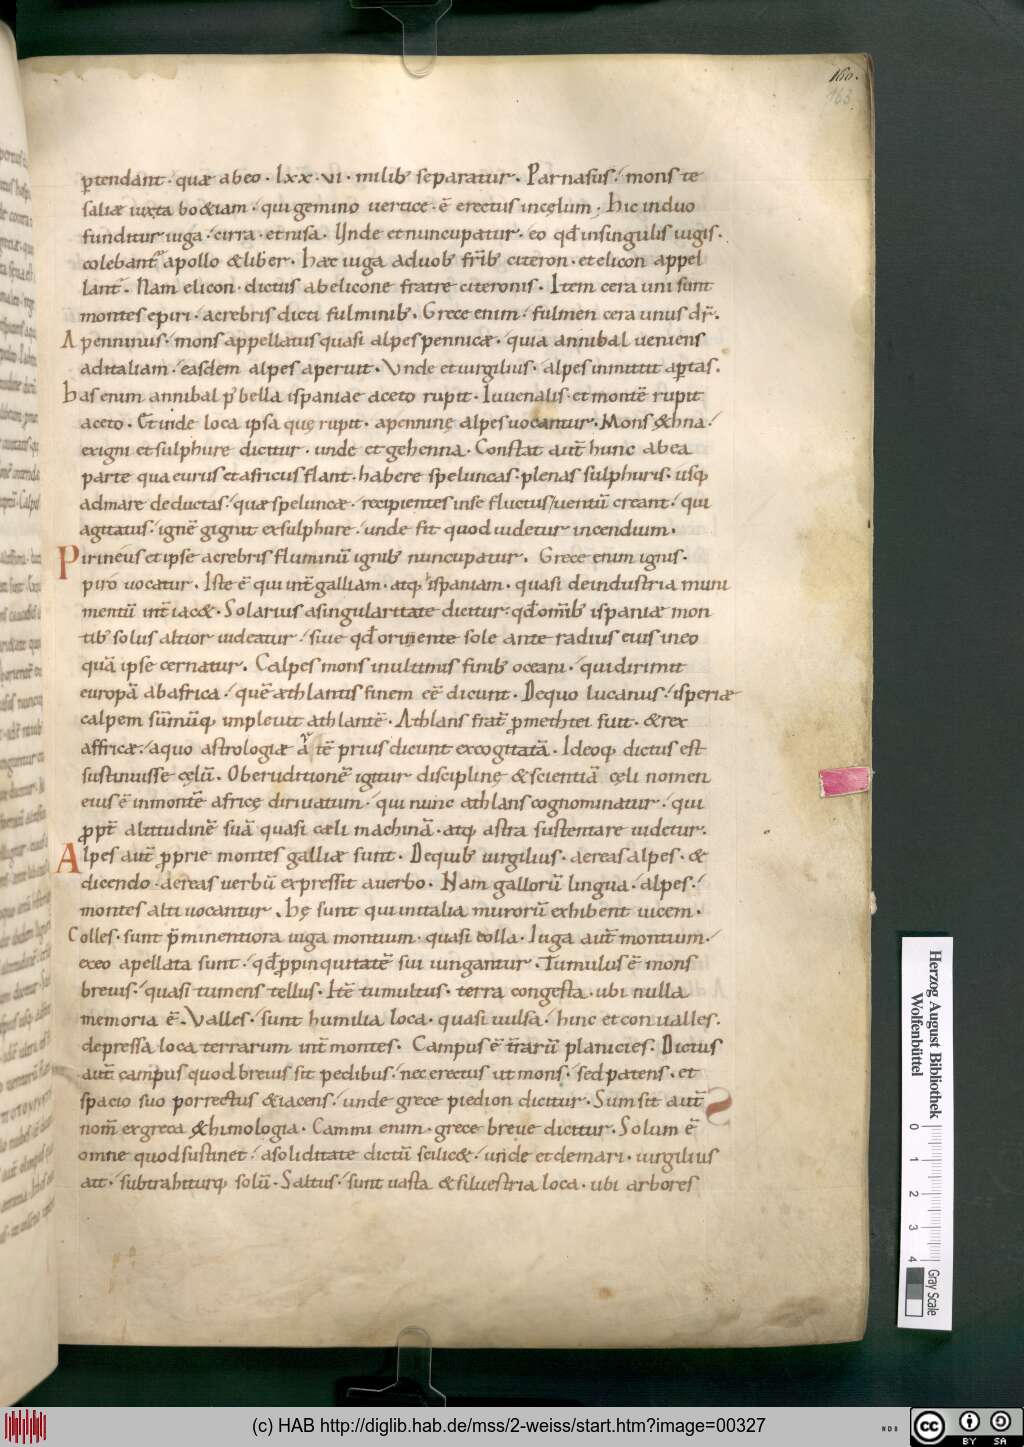 160.
163
ꝑtendant· quæ abeo· lxx·vi· milib; separatur. Parnasus· mons te
saliæ iuxta bo&iam· qui gemino uertice· ē erectus incęlum· Hic induo
funditur iuga· cirra· et nisa. Unde et nuncupatur· eo qđ insingulis iugis·
colebant apollo &liber. Hæc iuga aduob; fr̄ib; citeron· et elicon appel
lant. Nam elicon· dictus abelicone fratre citeronis. Item cerauni sunt
montes epiri· acrebris dicti fulminib;. Grece enim· fulmen ceraunus dr̄.
Apenninus· mons appellatus quasi alpes pennicæ· quia annibal ueniens
aditaliam· easdem alpes aperuit. Unde et uirgilius· alpes inmittit aꝑtas.
has enim annibal p̄ bella ispaniae aceto rupit. Iuuenalis· et montē rupit
aceto. Et inde loca ipsa quę rupit· apenninę alpes uocantur. Mons &hna·
exigni et sulphure dicitur· unde et gehenna. Constat aut̄ hunc abea
parte qua eurus et africus flant· habere speluncas· plenas sulphuris· usq;
admare deductas· quæ speluncæ· recipientes inse fluctus/uentū creant· qui
agitatus· ignē gignit ex sulphure· unde fit quod uidetur incendium.
Pirineus et ipse acrebris fluminū ignib; nuncupatur. Grece enim ignis·
piro uocatur. Iste ē qui int̄ galliam· atq; ispaniam· quasi deindustria muni
mentū int̄iac&. Solarius asingularitate dicitur· qđ om̄ib; ispaniæ mon
tib; solus altior uideatur· siue qđ oriente sole ante radius eius in eo
quā ipse cernatur. Calpes mons inultimis finib; oceani· qui dirimit
europā abafrica· quē athlantis finem eē dicunt. Dequo lucanus· isperiæ
calpem sūmūq; impleuit athlantē. Athlans frat̄ promethei fuit· &rex
affricæ· aquo astrologiæ artē prius dicunt excogitatā. Ideoq; dictus est
sustinuisse cęlū. Oberuditionē igitur disciplinę &scientiā cęli nomen
eius ē inmontē africę diriuatum· qui nunc athlans cognominatur· qui
ꝓpt̄ altitudinē suā quasi cæli machinā· atq; astra sustentare uidetur.
Alpes aut̄ ꝓprie montes galliæ sunt. Dequib; uirgilius· aereas alpes· &
dicendo· aereas uerbū expressit auerbo. Nam gallorū lingua· alpes·
montes alti uocantur. hę sunt qui initalia murorū exhibent uicem·
Colles· sunt p̄minentiora iuga montium· quasi colla. Iuga aut̄ montium·
exeo apellata sunt· qđ ꝓpinquitatē sui iungantur. Tumulus ē mons
breuis· quasi tumens tellus. Itē tumultus· terra congesta· ubi nulla
memoria ē. Valles· sunt humilia loca· quasi uulsa· hinc et conualles·
depressa loca terrarum int̄ montes. Campus ē t̄rarū planicies. Dictus
aut̄ campus quod breuis sit pedibus· nec erectus ut mons· sed patens· et
spacio suo porrectus &iacens· unde grece piedion dicitur. Sumsit aut̄
nom̄ exgreca &himologia. Cammi enim· grece breue dicitur. Solum ē
omne quod sustinet· asoliditate dictū scilic&· unde et demari· uirgilius
ait· subtrahiturq; solū. Saltus· sunt uasta &siluestria loca· ubi arbores
Herzog August Bibliothek
Wolfenbüttel
0 1 2 3 4
Gray Scale
(c) HAB http://diglib.hab.de/mss/2-weiss/start.htm?image=00327
cc BY SA